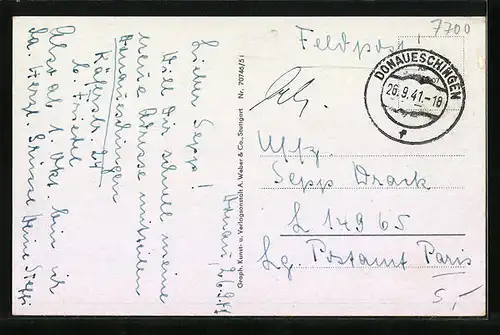 7700
Feldpost!
DONAUESCHINGEN
26.9.41.-18
Uffz.
Sepp Drack
L 14965
Lg. Postamt Paris
5,-
Graph. Kunst- u. Verlagsanstalt A. Weber & Co., Stuttgart Nr. 70746/51
26.9.41
Lieber Sepp!
Will Dir schnell meine
neue Adresse mitteilen
Donaueschingen
24
b. Friedel
Also ab 1. Okt. bin ich
da. Herzl. Grüsse Deine Steffi